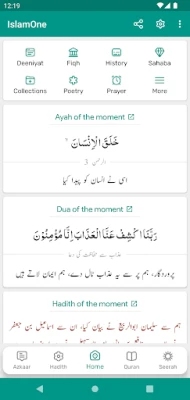 12:19
IslamOne
Deeniyat Fiqh History Sahaba
Collections Poetry Prayer More
Ayah of the moment
خَلَقَ الْاِنْسَانَ
الرحمن 3
اسی نے انسان کو پیدا کیا
Dua of the moment
رَبَّنَا اكْشِفْ عَنَّا الْعَذَابَ اِنَّا مُؤْمِنُوْنَ
عذاب سے حفاظت کی دعا
پروردگار، ہم پر سے یہ عذاب ٹال دے، ہم ایمان لاتے ہیں
Hadith of the moment
ہم سے سلیمان ابوالربیع نے بیان کیا، ان سے اسماعیل بن جعفر
Azkaar Hadith Home Quran Seerah